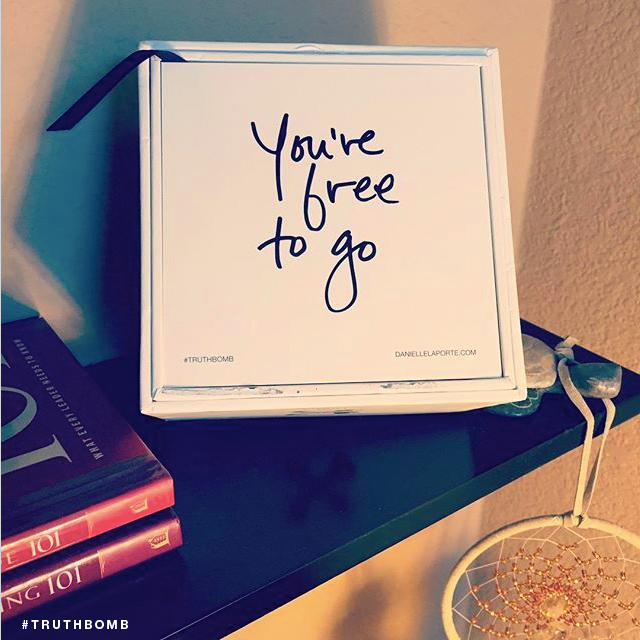 You're
free
to go
#TRUTHBOMB
DANIELLELAPORTE.COM
WHAT EVERY LEADER NEEDS TO KNOW
101
101
#TRUTHBOMB